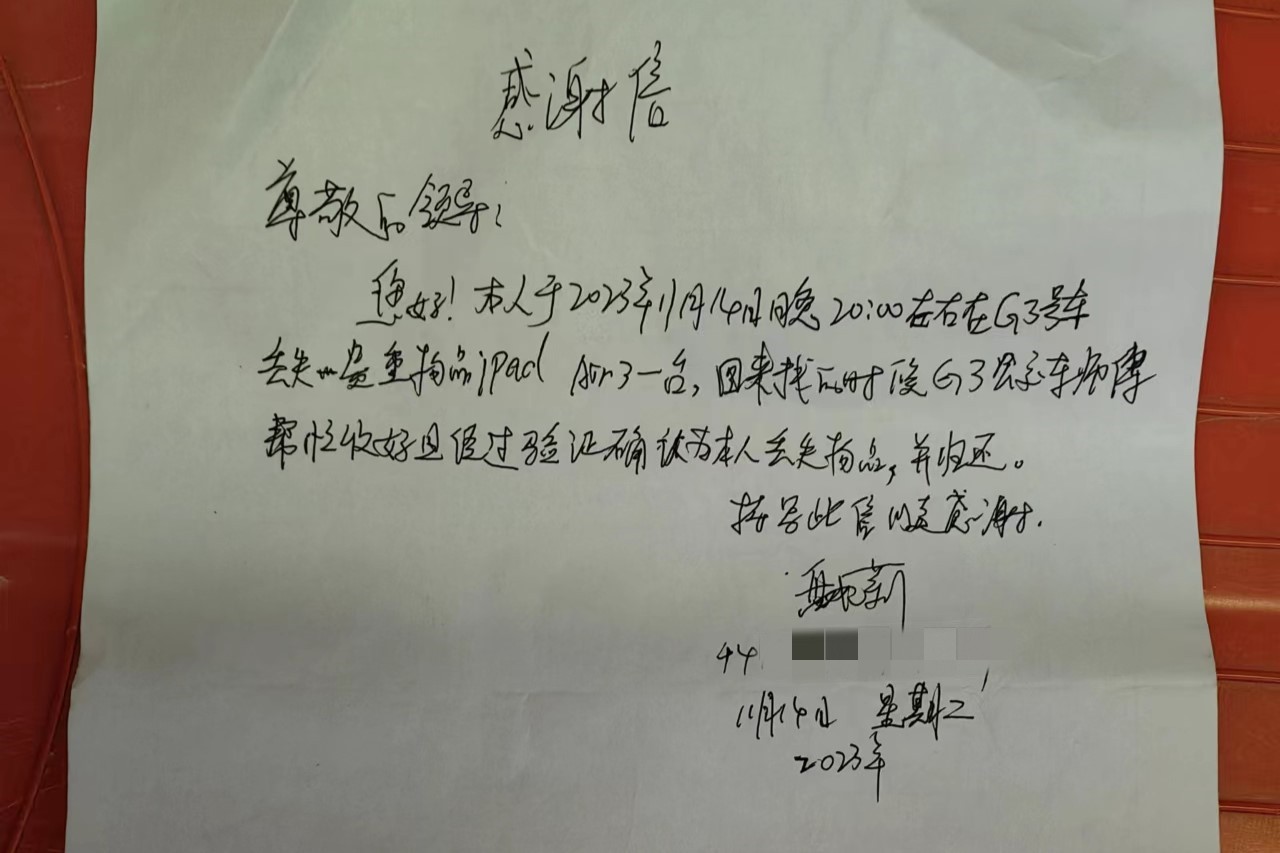 感谢信
尊敬的领导：
您好！本人于2023年11月14日晚20:00左右在G3号车
丢失贵重物品ipad Air3一台，回来找的时候G3公交车师傅
帮忙收好且经过验证确认为本人丢失物品，并归还。
持写此信以表感谢.
44
11月14日 星期二
2023年